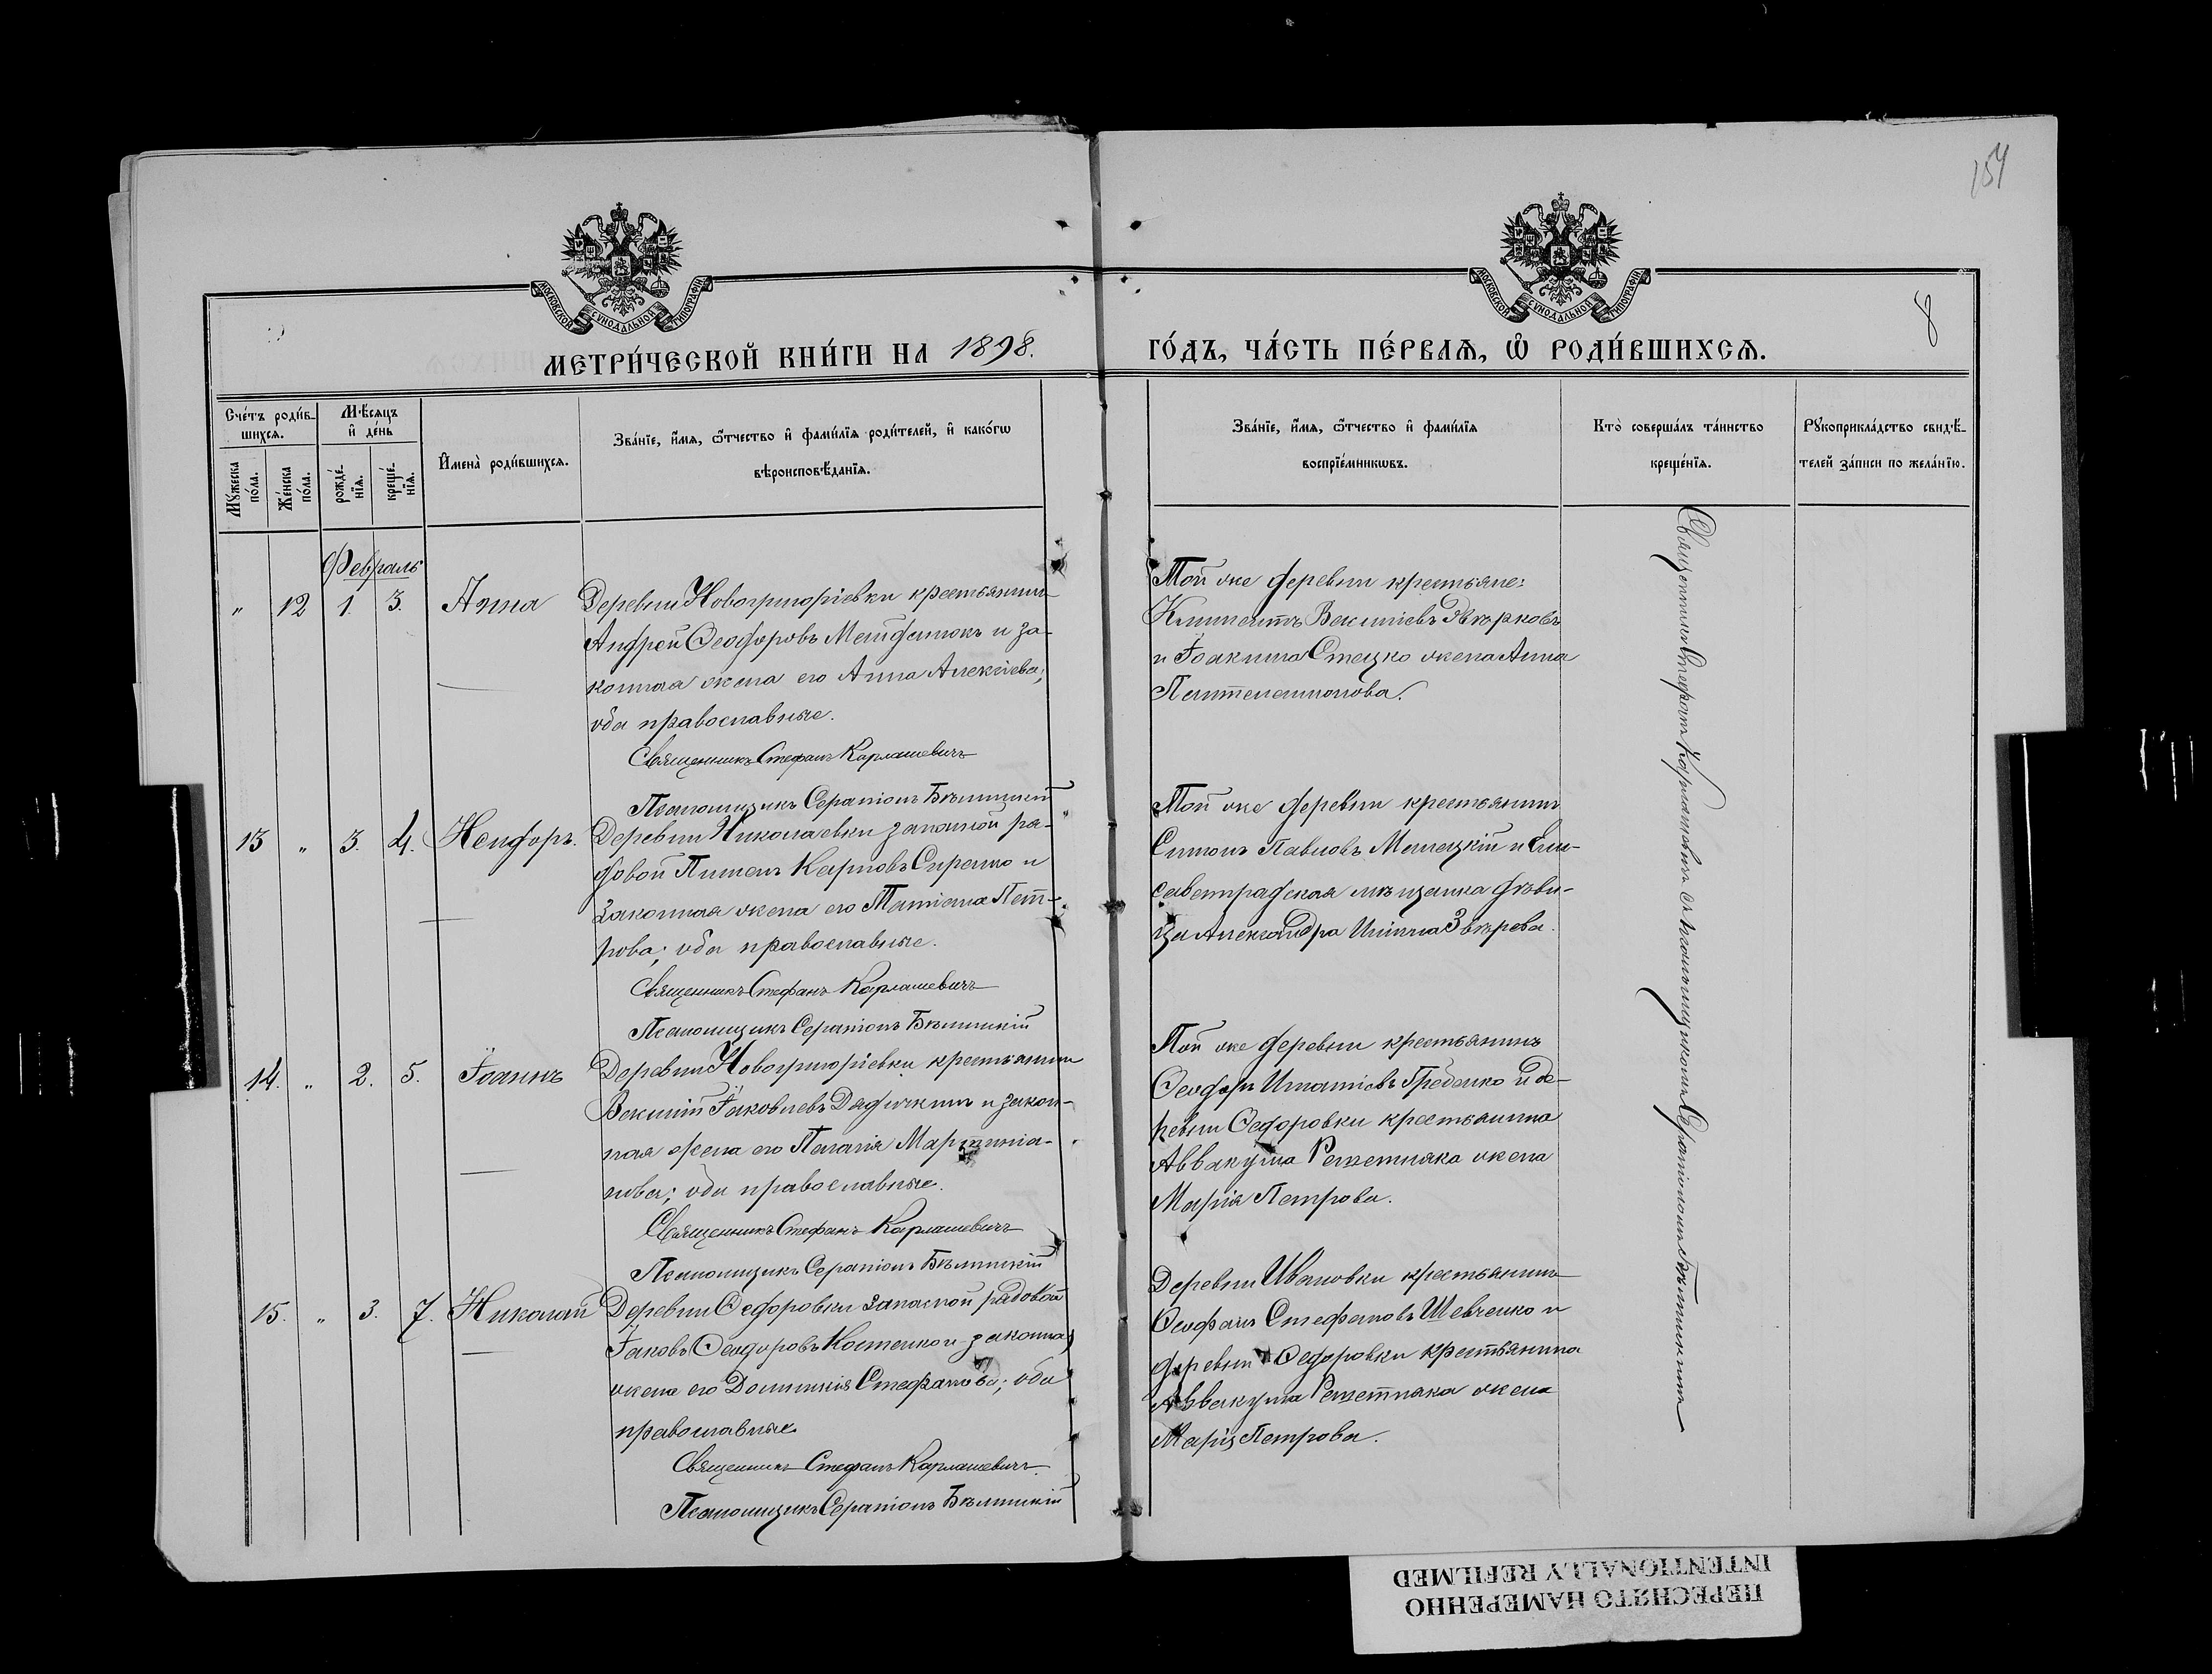 154
8
МОСКОВСКОЙ СѴНОДАЛЬНОЙ ТИПОГРАФІИ
МОСКОВСКОЙ СѴНОДАЛЬНОЙ ТИПОГРАФІИ
МЕТРИ́ЧЕСКОЙ КНИ́ГИ НА 1898.
ГО́ДЪ, ЧА́СТЬ ПЕ́РВАЯ, Ѡ РОДИ́ВШИХСЯ.
Сче́тъ роди́в-
шихся.
Мѣ́сяцъ
и де́нь
Мꙋ́жеска
по́ла.
Же́нска
по́ла.
рожде́-
нїя.
креще́-
нїя.
Имена̀ роди́вшихся.
Зва́нїе, и́мя, ѻ́тчество и фами́лїя роди́телей, и како́гѡ
вѣроисповѣ́данїя.
Зва́нїе, и́мя, ѻ́тчество и фами́лїя
воспрїе́мникѡвъ.
Кто̀ соверша́лъ та́инство
креще́нїя.
Рꙋкоприкла́дство свидѣ́-
телей за́писи по жела́нїю.
Февраль
" 12 1. 3. Анна
Деревни Новогригоріевки крестьянинъ
Андрей Ѳеодоровъ и за-
конная жена его Анна Алексіева;
оба православные.
Священникъ Стефанъ Карлашевичъ
Псаломщикъ Серапіонъ Бѣлинскій
Той же деревни крестьяне:
Климентъ Василіевъ
и Іоакима Стецко жена Анна
Пантелеимонова.
13 " 3. 4. Никифоръ.
Деревни Николаевки запасной ря-
довой Пименъ Карповъ Сиренко и
законная жена его Татіана Пет-
рова; оба православные.
Священникъ Стефанъ Карлашевичъ
Псаломщикъ Серапіонъ Бѣлинскій
Той же деревни крестьянинъ
Симонъ Павловъ и Ели-
саветградская мѣщанка дѣви-
ца Александра Звѣрева.
14. " 2. 5. Іоаннъ
Деревни Новогригоріевки крестьянинъ
Василій Іаковлевъ и закон-
ная жена его Пелагія Мартинia-
нова; оба православные.
Священникъ Стефанъ Карлашевичъ
Псаломщикъ Серапіонъ Бѣлинскій
Той же деревни крестьянинъ
Ѳеодоръ Игнатіевъ Гребенко и де-
ревни Ѳедоровки крестьянина
Аввакума Решетняка жена
Марія Петрова.
15. " 3. 7. Николай
Деревни Ѳедоровки запасной рядовой
Іаковъ Ѳеодоровъ Костенко и законная
жена его Домникія Стефанова; оба
православные.
Священникъ Стефанъ Карлашевичъ.
Псаломщикъ Серапіонъ Бѣлинскій
Деревни Ивановки крестьянинъ
Ѳеофанъ Стефановъ Шевченко и
деревни Ѳедоровки крестьянина
Аввакума Решетняка жена
Марія Петрова.
Священникъ Стефанъ Карлашевичъ съ псаломщикомъ Серапіономъ Бѣлинскимъ
ПЕРЕСНЯТО НАМЕРЕННО
INTENTIONALLY REFILMED